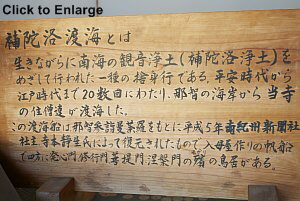 Click to Enlarge
補陀洛渡海とは
生きながらに南海の観音浄土(補陀洛浄土)を
めざして行われた一種の捨身行である。平安時代から
江戸時代まで20数回にわたり、那智の海岸から当寺
の住僧達が渡海した。
この渡海船は那智参詣曼荼羅をもとに平成5年南紀州新聞社
社主寺本静生氏によって復元されたもので、入母屋作りの帆船
で四方に発心門修行門菩提門涅槃門の殯の鳥居がある。